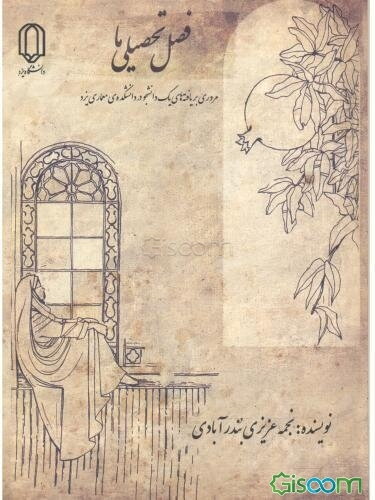 فصل تحصیلی ما
دانشگاه یزد
مروری بر یافته‌های یک دانشجو در دانشکده‌ی معماری یزد
Giscom
نویسنده: نجمه عزیزی بندرآبادی
Gisoom